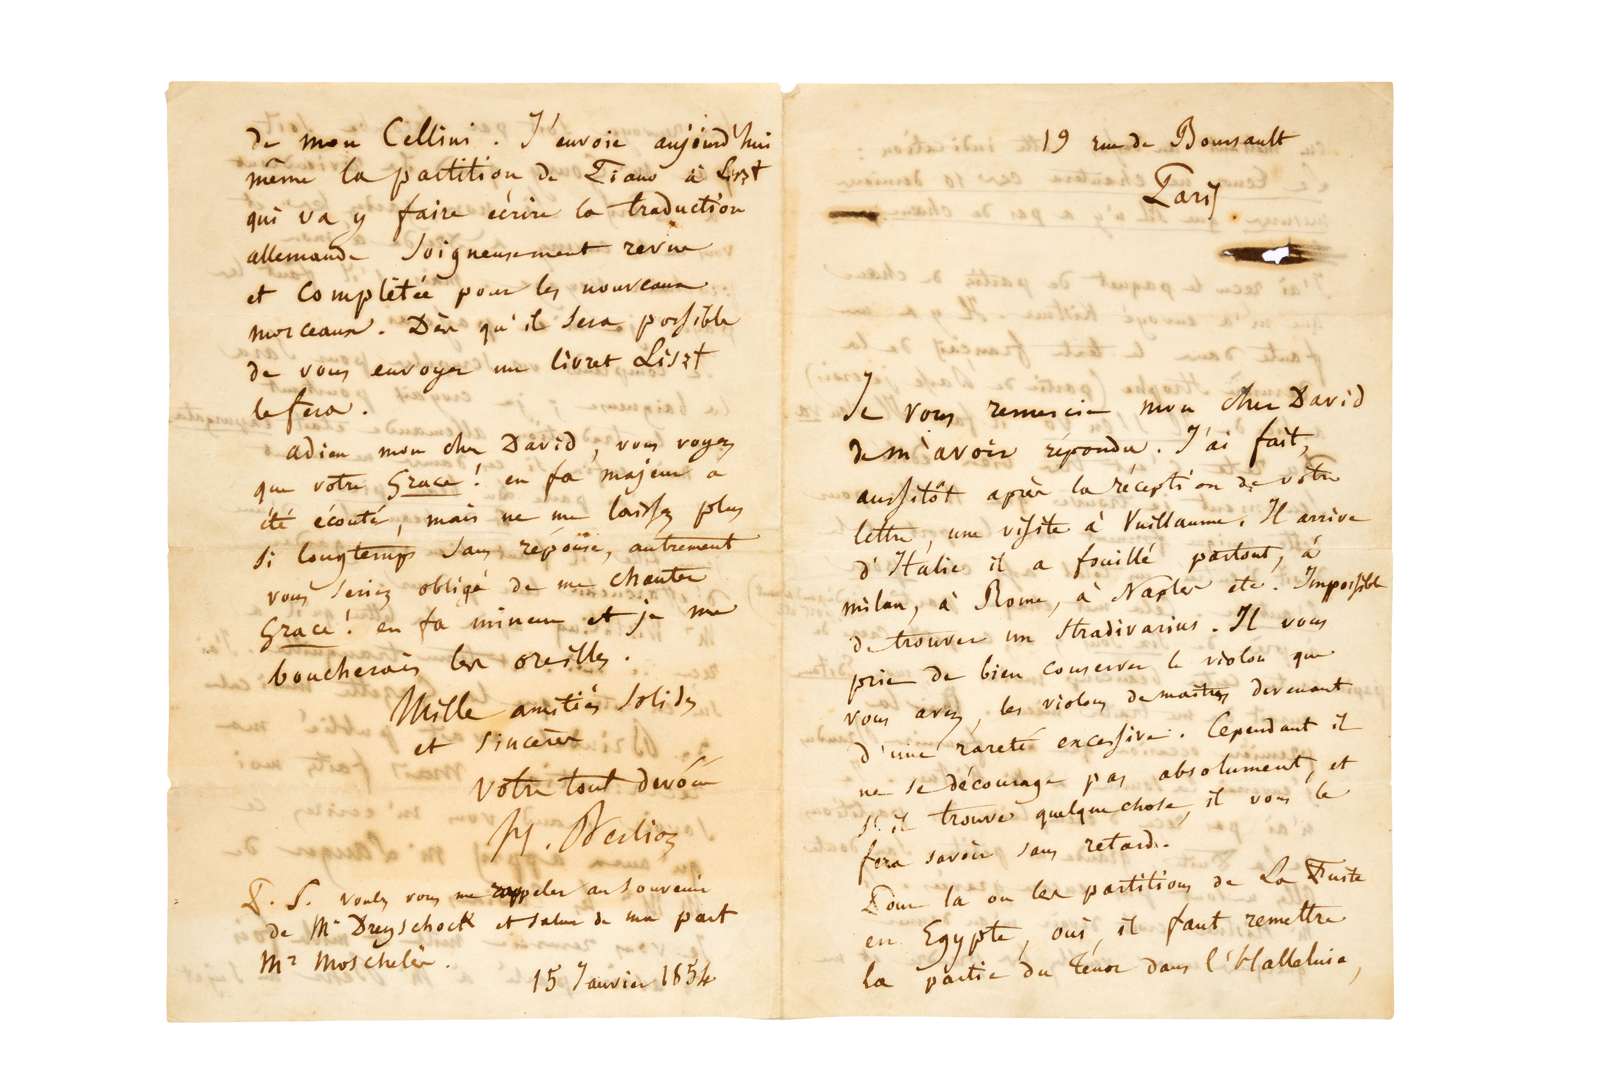 19 rue de Boursault
Paris
Je vous remercie mon cher David
de m'avoir répondu. J'ai fait,
aussitôt après la réception de votre
lettre, une visite à Vuillaume. Il arrive
d'Italie il a fouillé partout, à
milan, à Rome, à Naples etc. Impossible
de trouver un Stradivarius. Il vous
prie de bien conserver le violon que
vous avez, les violons de maitres devenant
d'une rareté excessive. Cependant il
ne se décourage pas absolument, et
s'il trouve quelque chose, il vous le
fera savoir sans retard.
Pour la ou les partitions de La Fuite
en Egypte, oui, il faut remettre
la partie du Ténor dans l'Halleluia,
de mon Cellini. J'envoie aujourd'hui
même la partition de Piano à Liszt
qui va y faire écrire la traduction
allemande soigneusement revue
et complétée pour les nouveaux
morceaux. Dès qu'il sera possible
de vous envoyer un livret Liszt
le fera.
adieu mon cher David, vous voyez
que votre Grace! en fa majeur a
été écouté, mais ne me laissez plus
si longtemps sans réponse, autrement
vous seriez obligé de me chanter
Grace! en fa mineur et je me
boucherais les oreilles.
Mille amitiés solides
et sincères
votre tout dévoué
H. Berlioz
P. S. voulez vous me rappeler au souvenir
de Mr Dreyschock et saluer de ma part
Mr Moschelès.
15 Janvier 1854